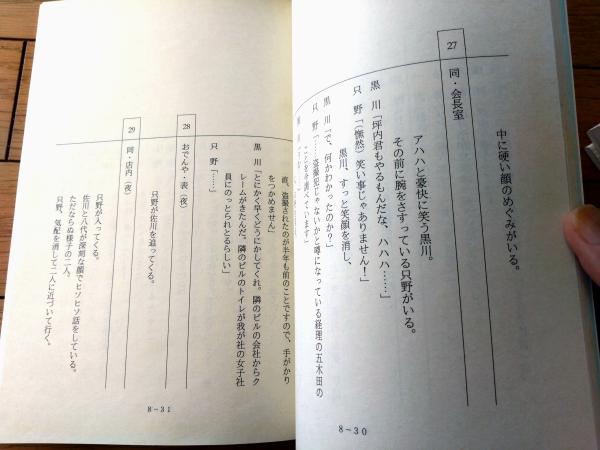 中に硬い顔のめぐみがいる。
27 同・会長室
アハハと豪快に笑う黒川。
その前に腕をさすっている只野がいる。
黒川「坪内君もやるもんだな、ハハハ……」
只野「(憮然)笑い事じゃありません!」
黒川、すっと笑顔を消し、
黒川「で、何かわかったのか?」
只野「……盗撮犯じゃないかと噂になっている経理の五木田の
ことを今調べています」
8-30
直、盗撮されたのが半年も前のことですので、手がかり
をつかめません」
黒川「とにかく早くどうにかしてくれ。隣のビルの会社からク
レームがきたんだ。隣のビルのトイレが我が社の女子社
員にのっとられとるらしい」
只野「……」
28 おでんや・表(夜)
只野が佐川を追ってくる。
29 同・店内(夜)
只野が入ってくる。
佐川と八代が深刻な顔でヒソヒソ話をしている。
ただならぬ様子の二人。
只野、気配を消して二人に近づいて行く。
8-31